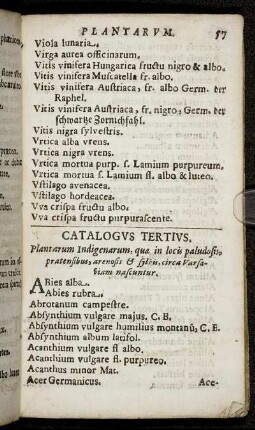 PLANTARVM. 57
Viola lunaria.
Virga aurea officinarum.
Vitis vinifera Hungarica fructu nigro & albo.
Vitis vinifera Muscatella fr. albo.
Vitis vinifera Austriaca, fr. albo Germ. der
Raphel.
Vitis vinifera Austriaca, fr. nigro, Germ. der
schwartze
Vitis nigra sylvestris.
Vrtica alba vrens.
Vrtica nigra vrens.
Vrtica mortua purp. s. Lamium purpureum.
Vrtica mortua s. Lamium fl. albo & luteo.
Vstilago avenacea.
Vstilago hordeacea.
Vva crispa fructu albo.
Vva crispa fructu purpurascente.
CATALOGVS TERTIVS,
Plantarum Indigenarum, quæ in locis paludosis,
pratensibus, arenosis & sylvis, circa Varsa-
viam nascuntur.
ABies alba.
Abies rubra.
Abrotanum campestre.
Absynthium vulgare majus. C. B.
Absynthium vulgare humilius montanũ, C. B.
Absynthium album latifol.
Acanthium vulgare fl albo.
Acanthium vulgare fl. purpureo.
Acanthus minor Mat.
Acer Germanicus.
Ace-